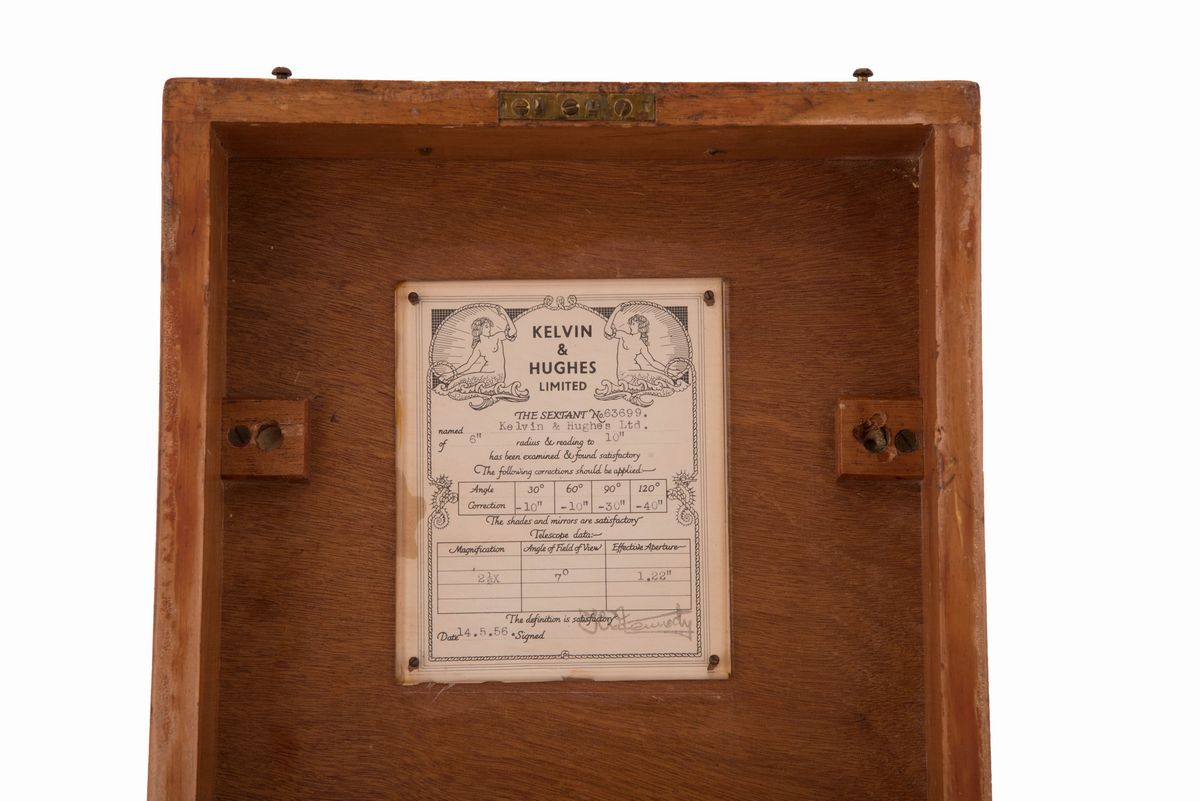 KELVIN
&
HUGHES
LIMITED
THE SEXTANT No. 63699.
named Kelvin & Hughes Ltd.
of 6" radius & reading to 10"
has been examined & found satisfactory
The following corrections should be applied:—
Angle 30° 60° 90° 120°
Correction -10" -10" -30" -40"
The shades and mirrors are satisfactory
Telescope data:—
Magnification Angle of Field of View Effective Aperture
2½X 7° 1.22"
The definition is satisfactory
Date 14.5.56. Signed